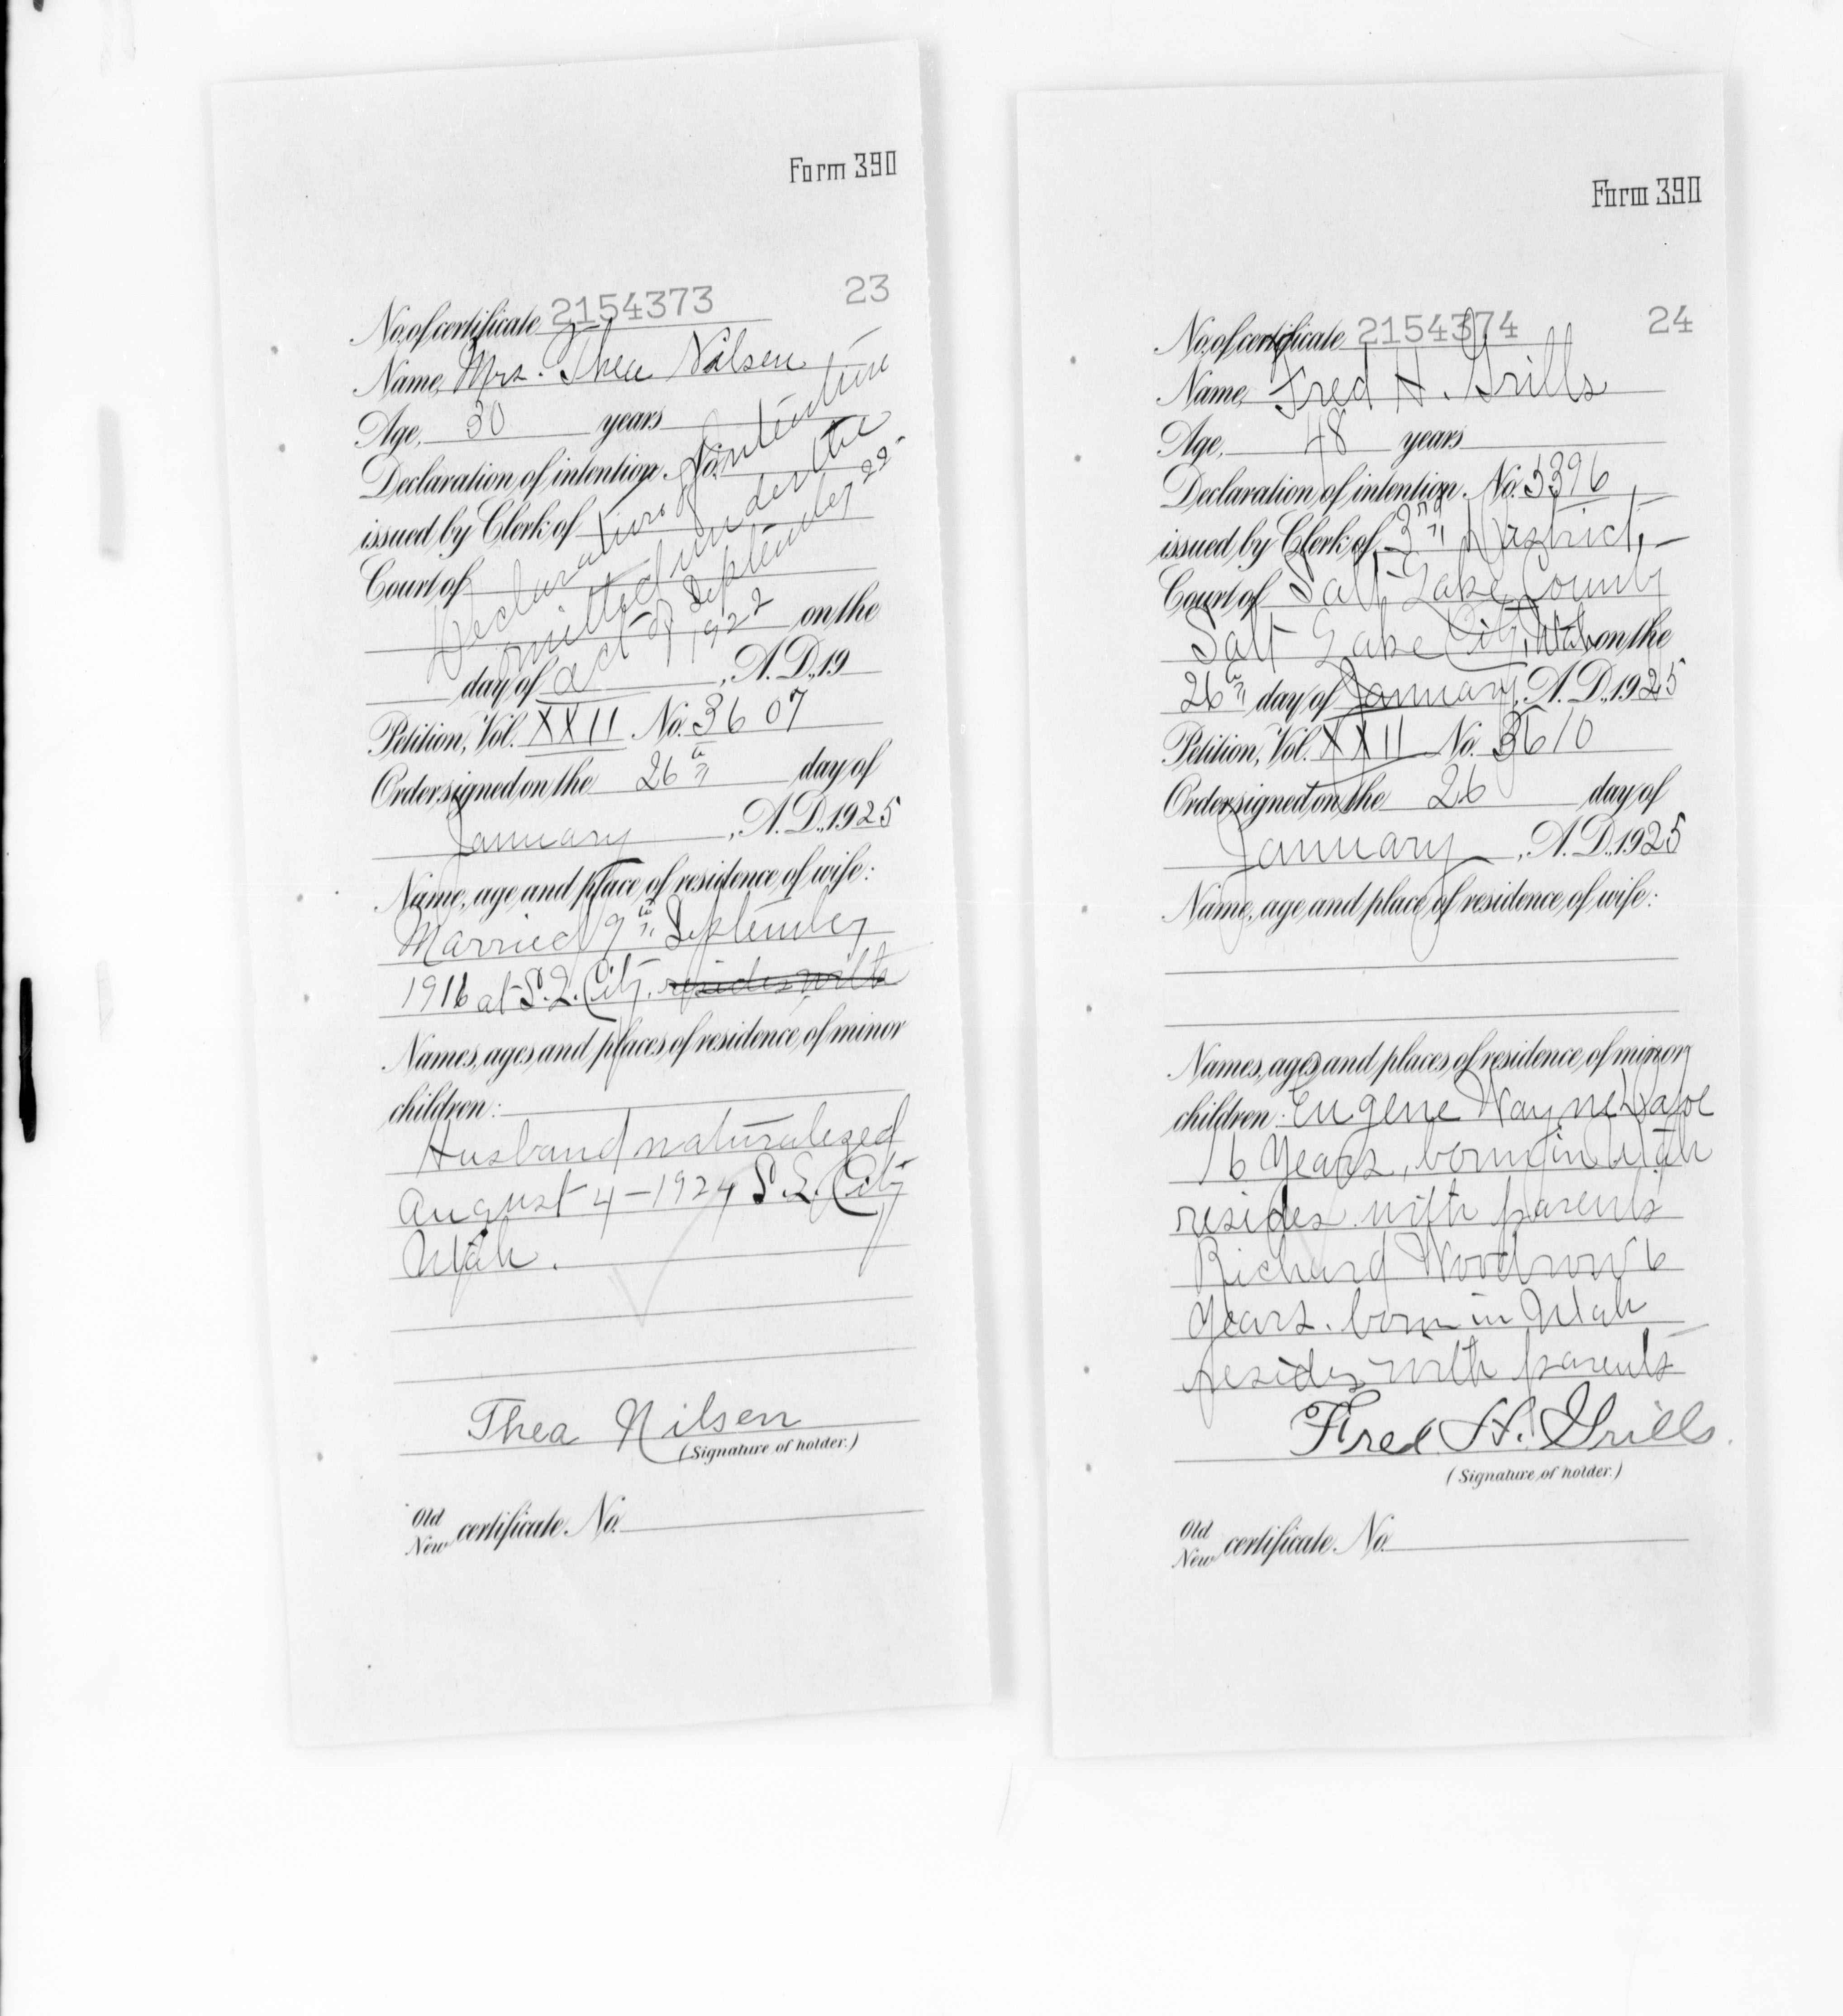 Form 390
No. of certificate 2154373 23
Name, Mrs. Thea Nilsen
Age, 30 years
Declaration of intention No.
issued by Clerk of
Court of
Declaration of Intention
omitted under the
act of September 22-
1922
on the
day of , A. D., 19
Petition, Vol. XXII No. 3607
Order signed on the 26th day of
January , A. D., 1925
Name, age and place of residence of wife:
Married 9th September
1916 at S. L. City. resides with
Names, ages and places of residence of minor
children:
Husband naturalized
August 4-1924 S. L. City
Utah.
Thea Nilsen
(Signature of holder.)
Old
New certificate No.
Form 390
No. of certificate 2154374 24
Name, Fred H. Grills
Age, 48 years
Declaration of intention No. 5396
issued by Clerk of 3rd District,
Court of Salt Lake County
Salt Lake City, Utah on the
26th day of January, A. D., 1925
Petition, Vol. XXII No. 3610
Order signed on the 26 day of
January , A. D., 1925
Name, age and place of residence of wife:
Names, ages and places of residence of minor
children: Eugene Wayne
16 years, born in Utah
resides with parents
Richard Woodrow 6
years. born in Utah
resides with parents
Fred H. Grills
(Signature of holder.)
Old
New certificate No.